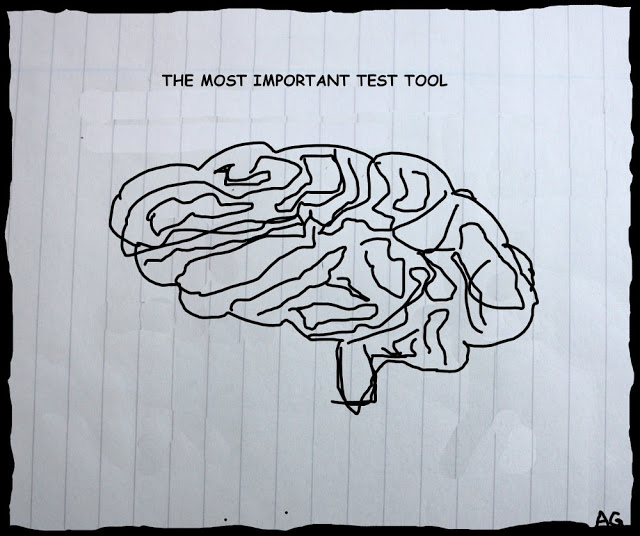 THE MOST IMPORTANT TEST TOOL
AG